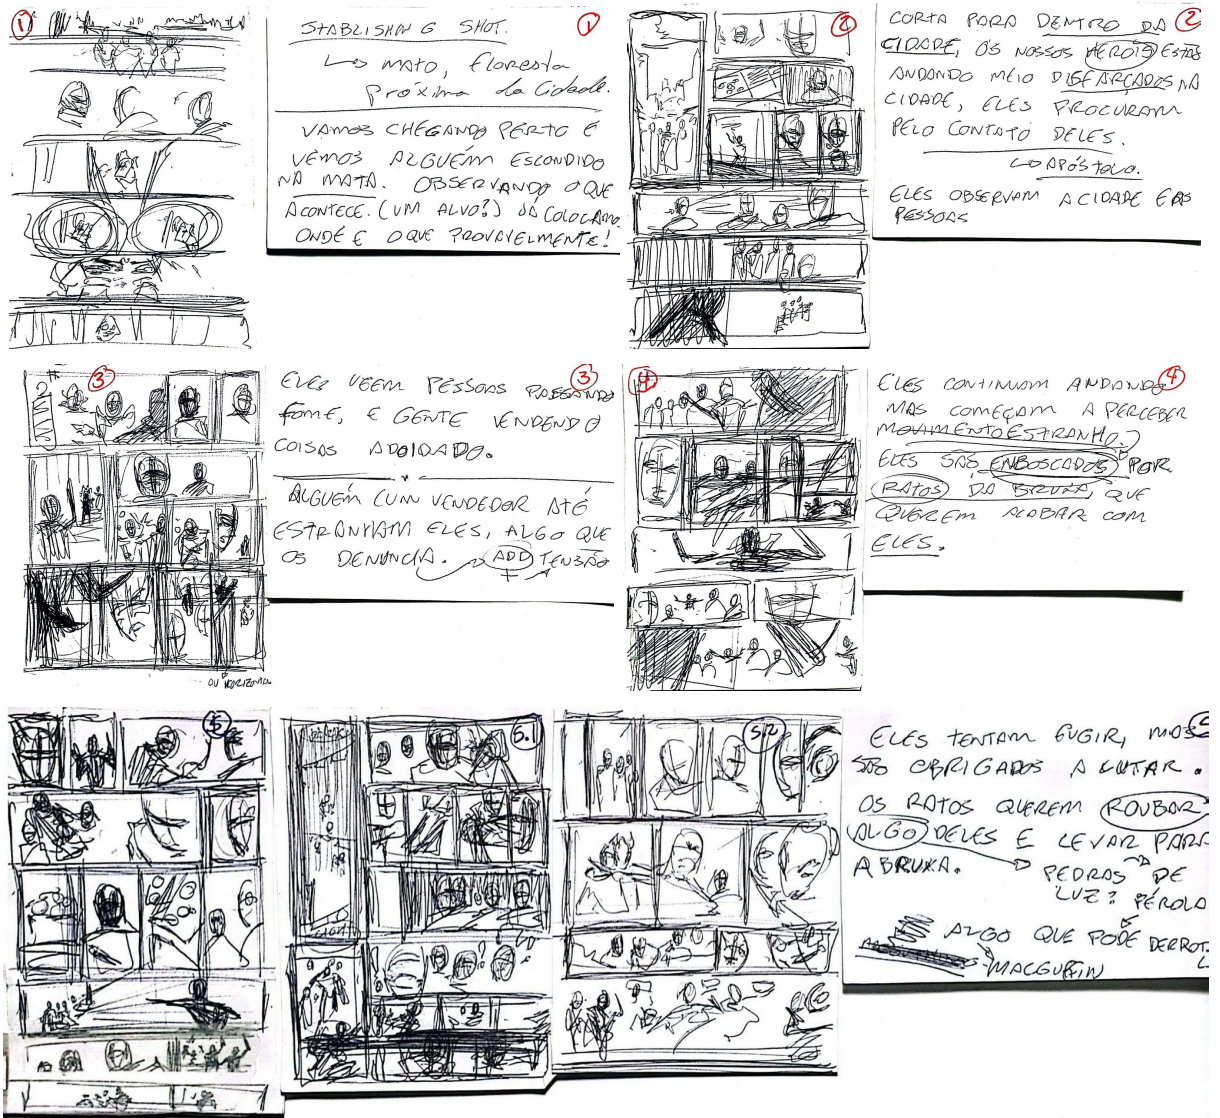 1
STABLISHING SHOT.
1
↳ MATO, floresta
próxima da Cidade.
VAMOS CHEGANDO PERTO E
VEMOS ALGUÉM ESCONDIDO
NA MATA. OBSERVANDO O QUE
ACONTECE. (UM ALVO?) JÁ COLOCAMO
ONDE E O QUE PROVAVELMENTE!
2
CORTA PARA DENTRO DA
2
CIDADE, OS NOSSOS HERÓIS ESTÃO
ANDANDO MEIO DISFARÇADOS NA
CIDADE, ELES PROCURAM
PELO CONTATO DELES.
↳ APÓSTOLO.
ELES OBSERVAM A CIDADE E AS
PESSOAS
3
ELES VEEM PESSOAS PASSANDO
3
FOME, E GENTE VENDENDO
COISAS ADOIDADO.
ALGUÉM (UM VENDEDOR ATÉ
ESTRANHAM ELES, ALGO QUE
OS DENUNCIA. ADD TENSÃO
+
OU HORIZONTAL
4
ELES CONTINUAM ANDANDO
4
MAS COMEÇAM A PERCEBER
MOVIMENTO ESTRANHO.
ELES SÃO ENBOSCADOS POR
RATOS DA BRUXA, QUE
QUEREM ACABAR COM
ELES.
5
5.1
5.2
5
ELES TENTAM FUGIR, MAS
SÃO OBRIGADOS A LUTAR.
OS RATOS QUEREM ROUBAR
ALGO DELES E LEVAR PARA
A BRUXA.
PEDRAS DE
LUZ? PÉROLA
ALGO QUE PODE DERROT
MACGUFFIN